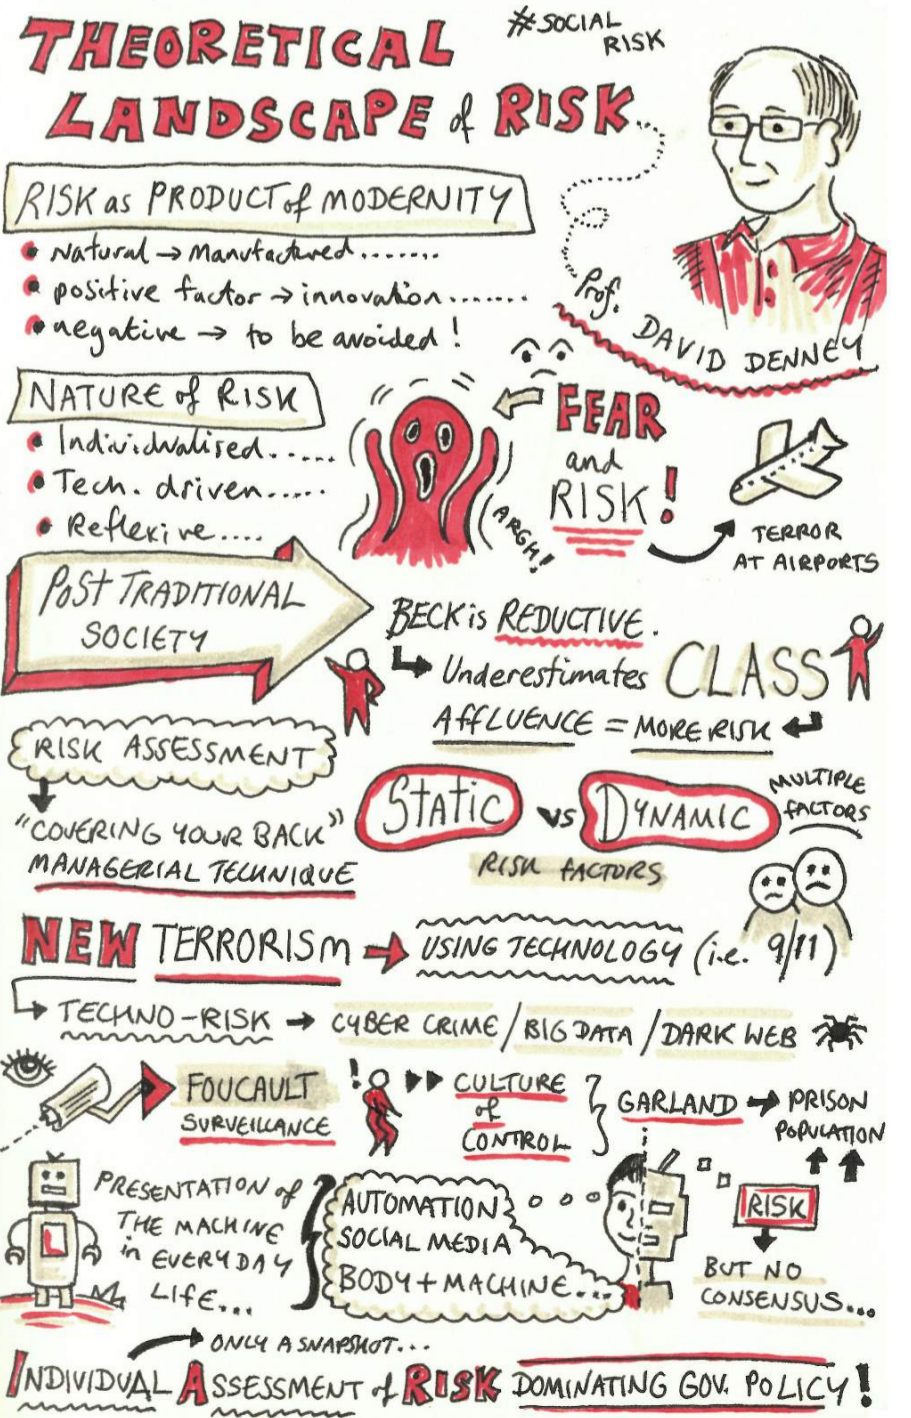 THEORETICAL
LANDSCAPE of RISK
#SOCIAL
RISK
Prof. DAVID DENNEY
RISK as PRODUCT of MODERNITY
Natural → Manufactured .......
positive factor → innovation.......
negative → to be avoided!
NATURE of RISK
Individualised......
Tech. driven.....
Reflexive....
ARGH!
FEAR
and
RISK!
TERROR
AT AIRPORTS
POST TRADITIONAL
SOCIETY
BECK is REDUCTIVE.
Underestimates CLASS
AFFLUENCE = MORE RISK
RISK ASSESSMENT
"COVERING YOUR BACK"
MANAGERIAL TECHNIQUE
STATIC vs DYNAMIC
RISK FACTORS
MULTIPLE
FACTORS
NEW TERRORISM → USING TECHNOLOGY (i.e. 9/11)
TECHNO-RISK → CYBER CRIME / BIG DATA / DARK WEB
FOUCAULT
SURVEILLANCE
!
CULTURE
of
CONTROL
GARLAND → PRISON
POPULATION
PRESENTATION of
THE MACHINE
in EVERYDAY
LIFE...
AUTOMATION
SOCIAL MEDIA
BODY + MACHINE...
RISK
BUT NO
CONSENSUS...
ONLY A SNAPSHOT...
INDIVIDUAL ASSESSMENT of RISK DOMINATING GOV. POLICY!